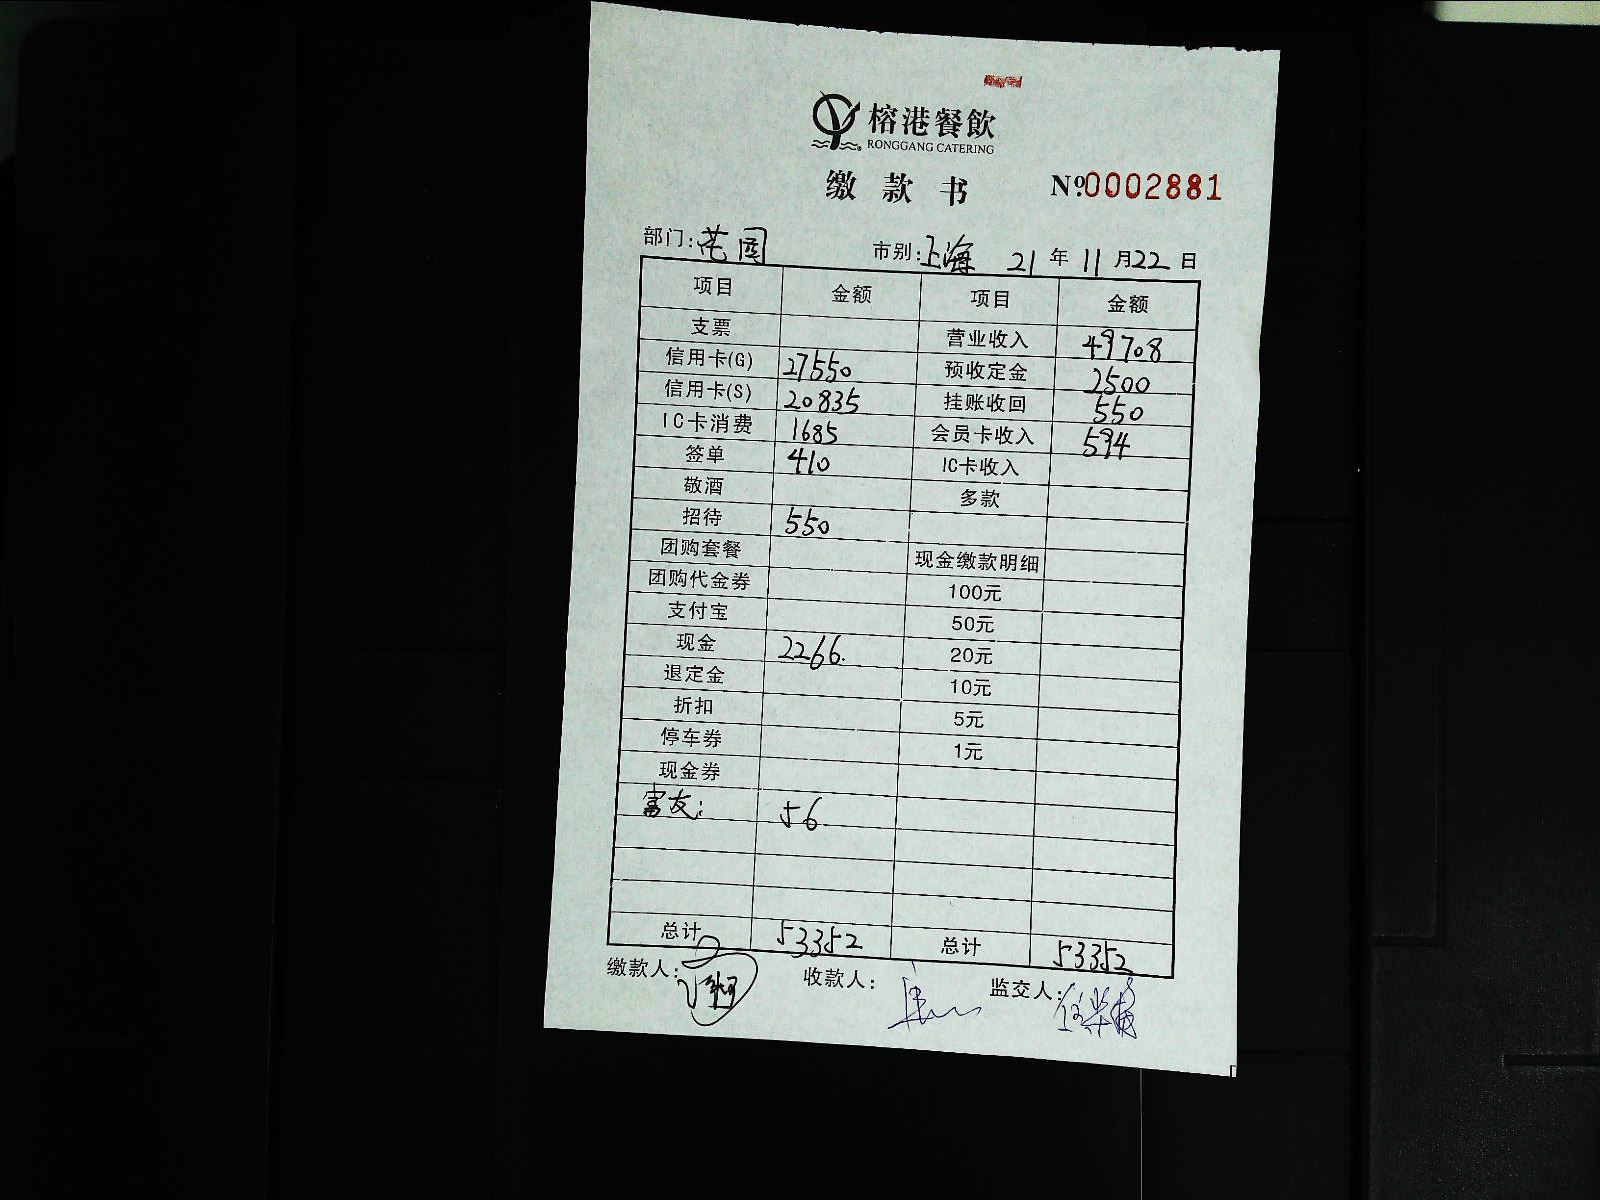 榕港餐飲
RONGGANG CATERING
缴款书 №0002881
部门:花园 市别:上海 21年11月22日
项目 金额 项目 金额
支票 营业收入 49708
信用卡(G) 27550 预收定金 2500
信用卡(S) 20835 挂账收回 550
IC卡消费 1685 会员卡收入 594
签单 410 IC卡收入
敬酒 多款
招待 550
团购套餐 现金缴款明细
团购代金券 100元
支付宝 50元
现金 2266. 20元
退定金 10元
折扣 5元
停车券 1元
现金券
富友: 56
总计 53352 总计 53352
缴款人: 收款人: 监交人: